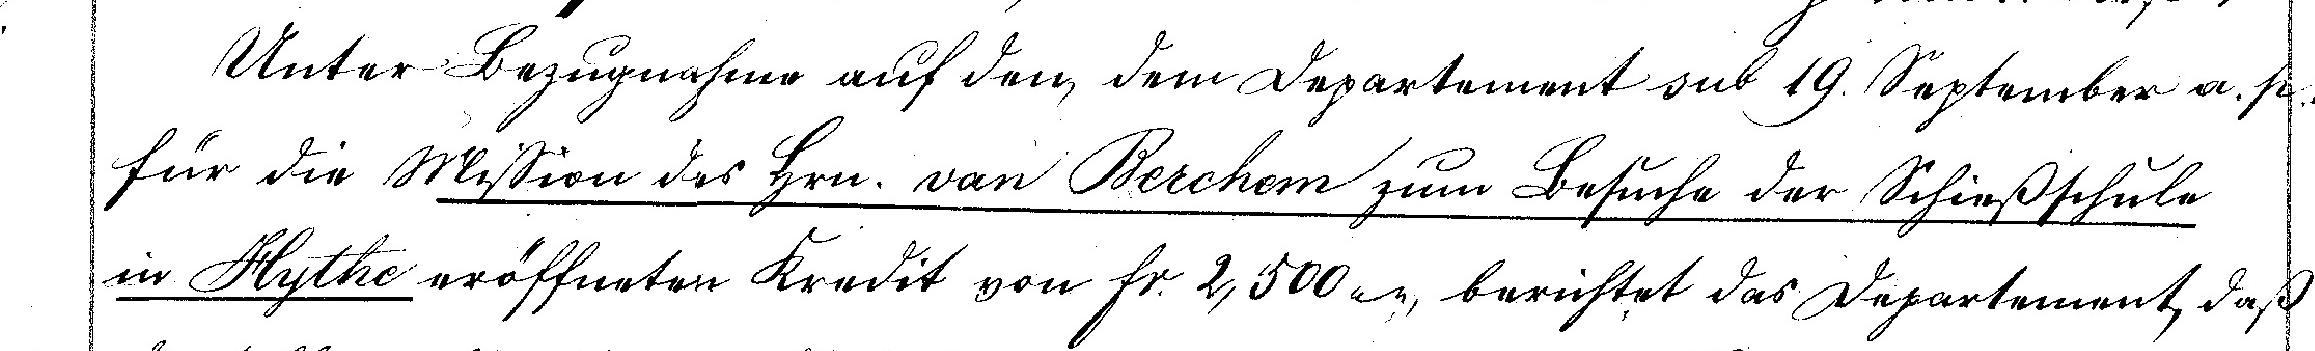 Unter Bezugnahme auf den, dem Departement sub 19. September a. p.
für die Mission des Hrn. van Berchem zum Besuche der Schießschule
in Hythe eröffneten Kredit von fr. 2,500 „ „, berichtet das Departement, daß